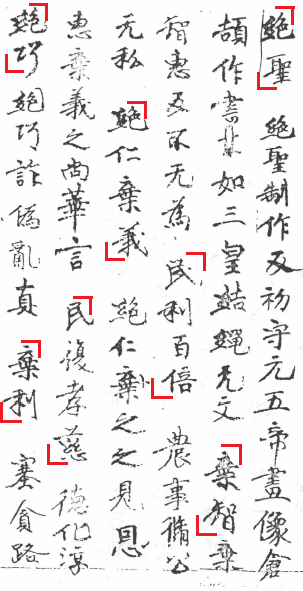 絶聖絶聖制作反初守元五帝畫像倉
頡作書不如三皇結繩无文棄智棄
智惠反不无為民利百倍農事脩公
无私絶仁棄義絶仁棄之之見恩
惠棄義之尚華言民復孝慈德化淳
絶巧絶巧詐偽亂真棄利塞貪路